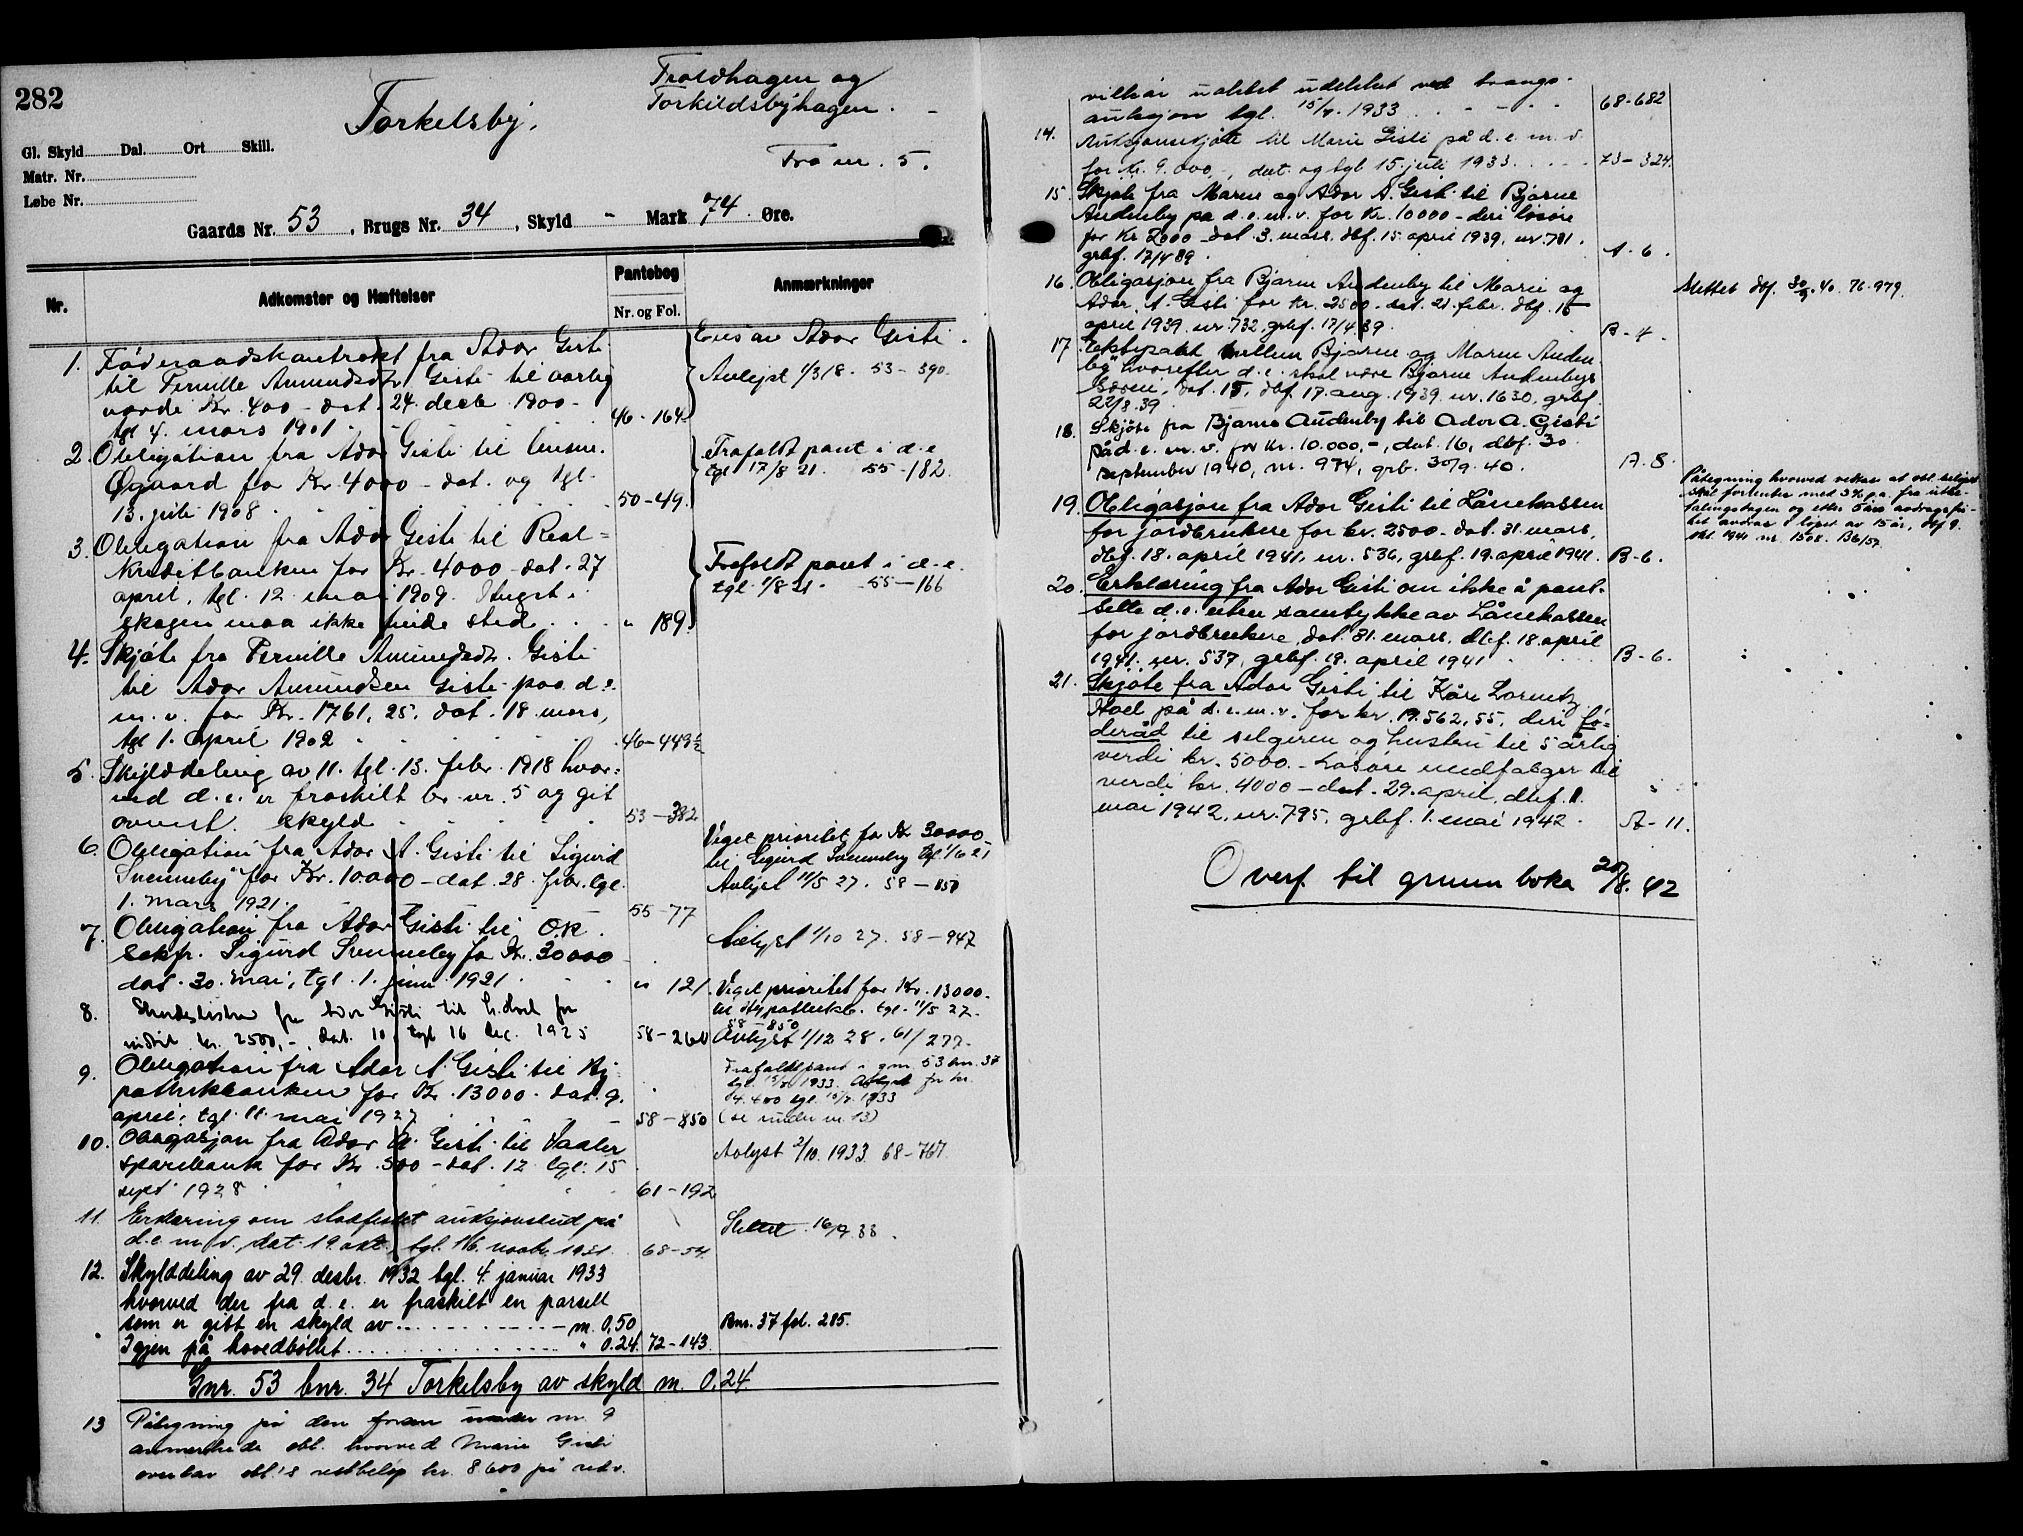 282
Torkelsby.
Troldhagen og
Torkildsbyhagen.
Fra nr. 5.
Gl. Skyld Dal. Ort Skill.
Matr. Nr.
Løbe Nr.
Gaards Nr. 53, Brugs Nr. 34, Skyld - Mark 74 Øre.
Nr.
Adkomster og Hæftelser
Pantebog
Nr. og Fol.
Anmærkninger
1. Føderaadskontrakt fra Ador Gisti
til Pernille Amundsdtr. Gisti til aarlig
værdi Kr. 400 - dat. 24. decbr. 1900 -
tgl 4. mars 1901. 46-164
Ador Gisti.
Avlyst 1/3 18. 53-390.
2. Obligation fra Ador Gisti til
Øgaard for Kr. 4000 - dat. og tgl.
13. juli 1908. 50-49.
Frafaldt pant i d.e.
tgl 17/8 21. 55-182.
3. Obligation fra Ador Gisti til Real=
kreditbanken for Kr. 4000 - dat. 27
april, tgl. 12 mai 1909. Hugst i
skogen maa ikke finde sted. " 189.
Frafaldt pant i d.e.
tgl. 1/8 21. 55-166
4. Skjøte fra Pernille Amundsdtr. Gisti
til Ador Amundsen Gisti paa d.e.
m.v. for Kr. 1761,25. dat. 18 mars,
tgl 1. april 1902 46-449½
5. Skylddeling av 11. tgl. 13. febr. 1918 hvor=
ved d.e. er fraskilt br. nr. 5 og git
ovenst. skyld 53-382
6. Obligation fra Ador A. Gisti til Sigurd
Svenneby for Kr. 10.000 - dat. 28. febr. tgl.
1. mars 1921. 55-77
Veget prioritet for Kr 30000
til Sigurd Svenneby tgl 1/6 21
Avlyst 11/5 27. 58-850
7. Obligation fra Ador Gisti til O.R.
Sakfr. Sigurd Svenneby for Kr. 30000
dat. 30. mai, tgl. 1. juni 1921 " 121.
Avlyst 1/10 27. 58-947
8. fra Ador Gisti til
kr. 2500,- dat. 10, tgl 16 dec. 1925 58-260
Veget prioritet for Kr. 13000.
til Hypotekbk. tgl. 11/5 27.
58-850
Avlyst 1/12 28. 61/277.
9. Obligation fra Ador A Gisti til Hy
pothekbanken for Kr. 13000. dat. 9.
april, tgl. 11. mai 1927 58-850
Frafaldt pant i gnr. 53 bnr. 37
1933. Avlyst for kr.
4.400 tgl. 1933
(se under nr 13)
10. Obligasjon fra Ador A. Gisti til Vaaler
sparebank for Kr. 500 - dat. 12 tgl. 15
sept 1928 61-192
Avlyst 2/10. 1933. 68-767
11. Erklæring om stadfestet auksjonsbud på
d.e. m.v. dat. 19. okt. tgl. 16. novbr. 1931 68-54.
Slettet 16/9 33.
12. Skylddeling av 29. desbr. 1932 tgl. 4. januar 1933
hvorved der fra d.e. er fraskilt en parsell
som er gitt en skyld av m. 0,50
Igjen på hovedbølet " 0.24. 72-143.
Bnr. 37 fol. 285.
Gnr. 53 bnr. 34 Torkelsby av skyld m. 0,24.
13 Påtegning på den foran under nr. 9
anmerkede obl. hvorved Marie Gisti
overtar obl's restbeløp kr. 8600 på
vilkår udekket ved tvangs-
auksjon tgl. 15/7. 1933 68-682
14. Auksjonsskjøte til Marie Gisti på d.e. m.v.
for kr. 9.000,-, dat. og tgl 15. juli 1933 73-324.
15. Skjøte fra Marie og Ador A. Gisti til Bjarne
Audenby på d.e.m.v. for Kr. 10000 - deri løsøre
for Kr 2000 - dat. 3. mars, dbf. 15. april 1939, nr. 731,
grbf. 17/4 39. A-6.
16. Obligasjon fra Bjarne Audenby til Marie og
Ador A. Gisti for Kr. 2500 - dat. 21. febr. dbf. 15
april 1939. nr. 732, grbf. 17/4.39. B-4.
Slettet dbf. 30/9.40. 76.979.
17. Ektepakt mellem Bjarne og Marie Auden
by hvorefter d.e. skal være Bjarne Audenbys
særeie, dat. 15, dbf. 17. aug. 1939. nr. 1630, grbf.
22/8.39.
18. Skjøte fra Bjarne Audenby til Ador A. Gisti
på d.e. m.v. for kr. 10.000,-, dat. 16, dbf. 30
september 1940, nr. 974, grb. 30/9. 40. A.8.
19. Obligasjon fra Ador Gisti til Lånekassen
for jordbrukere for kr. 2500 - dat. 31. mars,
dbf. 18. april 1941, nr. 536, grbf. 19. april 1941. B-6.
Påtegning hvorved vedtas at obl. beløpet
skal forrentes med 3% p.a. fra utbe-
talingsdagen og etter 5 års avdragsfri-
het avdras i løpet av 15 år, dbf 9.
okt. 1941 nr. 1508. B6/57.
20. Erklæring fra Ador Gisti om ikke å pant-
sette d.e. uten samtykke av Lånekassen
for jordbrukere, dat. 31. mars, dbf. 18. april
1941. nr. 537, grbf. 19. april 1941 B-6.
21. Skjøte fra Ador Gisti til Kåre Lorentz
Hoel på d.e.m.v. for kr. 19.562,55, deri fø=
deråd til selgeren og hustru til 5 årlig
verdi kr. 5000. - Løsøre medfølger til
verdi kr. 4000 - dat. 29. april, dbf. 1.
mai 1942, nr. 795, grbf. 1. mai 1942. A-11.
Overf. til grunnboka 20/8. 42